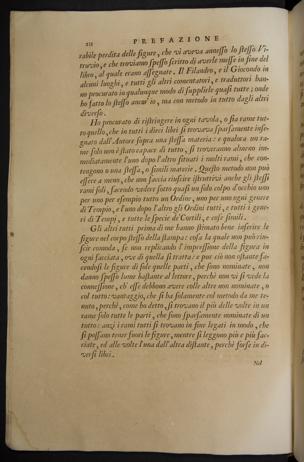 xii PREFAZIONE
rabile perdita delle figure, che vi aveva annesso lo stesso Vi-
truvio, e che troviamo spesso scritto di averle messe in fine del
libro, al quale erano assegnate. Il Filandro, e il Giocondo in
alcuni luoghi, e tutti gli altri comentatori, e traduttori han-
no procurato in qualunque modo di supplirle quasi tutte: onde
ho fatto lo stesso anch'io, ma con metodo in tutto dagli altri
diverso.
Ho procurato di ristringere in ogni tavola, o sia rame tut-
to quello, che in tutti i dieci libri si trovava sparsamente inse-
gnato dall'Autore sopra una stessa materia: e qualora un ra-
me solo non è stato capace di tutto, si troveranno almeno im-
mediatamente l'uno dopo l'altro situati i molti rami, che con-
tengono o una stessa, o simili materie. Questo metodo non può
essere a meno, che non faccia riuscire istruttivi anche gli stessi
rami soli, facendo vedere sotto quasi un solo colpo d'occhio uno
per uno per esempio tutto un Ordine, uno per uno tutti i generi
di Tempio, e l'uno dopo l'altro gli Ordini tutti, e tutti i gene-
ri di Tempj, e tutte le specie de' Cortili, e cose simili.
Gli altri tutti prima di me hanno stimato bene inserire le
figure nel corpo stesso della stampa: cosa la quale non può riu-
scire comoda, se non replicando l'impressione della figura in
ogni facciata, ove di quella si tratta: e pur ciò non ostante fa-
cendosi le figure di sole quelle parti, che sono nominate, non
danno spesso lume bastante al lettore, perchè non vi si vede la
connessione, ch'esse debbono avere colle altre non nominate, o
col tutto: vantaggio, che si ha solamente col metodo da me te-
nuto, perchè, come ho detto, si trovano il più delle volte in un
rame solo tutte le parti, che sono sparsamente nominate di un
tutto: anzi i rami tutti si trovano in fine legati in modo, che
si possano tener fuori le figure, mentre si leggono più e più fac-
ciate, ed alle volte l'una dall'altra distante, perchè forse in di-
versi libri.
Nel